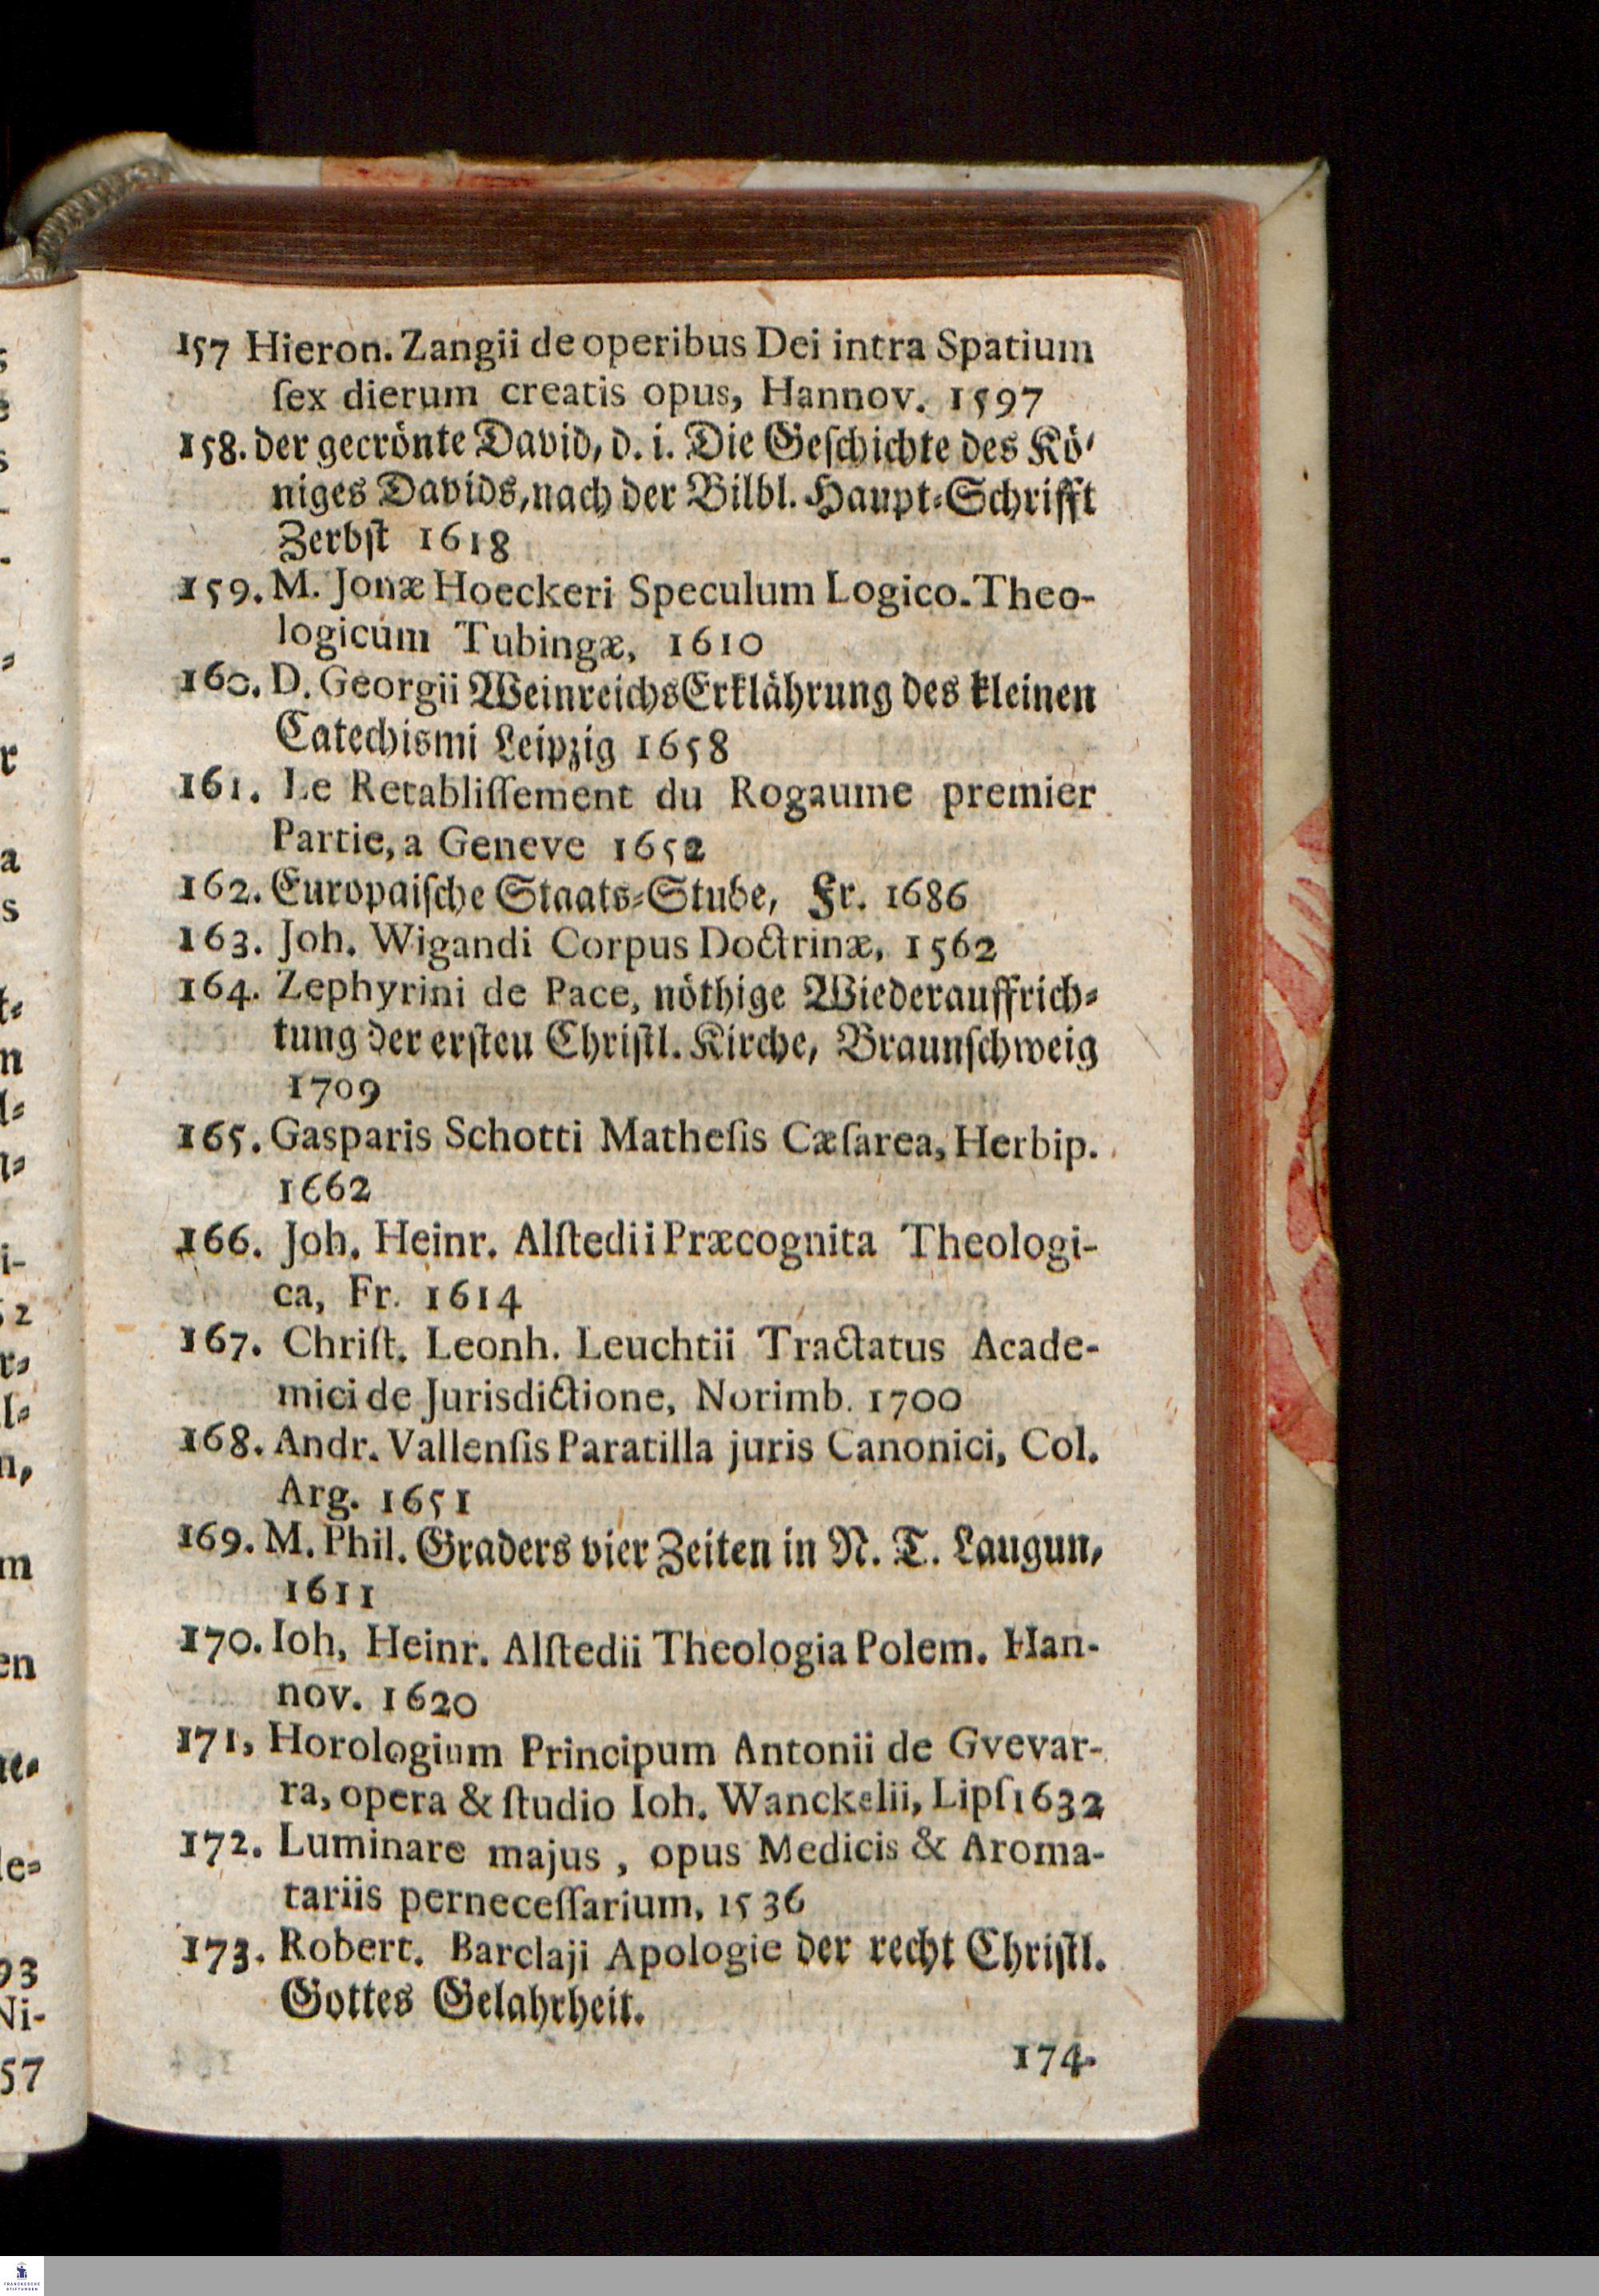 157 Hieron. Zangii de operibus Dei intra Spatium
ſex dierum creatis opus, Hannov. 1597
158. der gecrönte David, d. i. Die Geſchichte des Kö-
niges Davids, nach der Bilbl. Haupt-Schrifft
Zerbſt 1618
159. M. Jonæ Hoeckeri Speculum Logico. Theo-
logicum Tubingæ, 1610
160. D. Georgii Weinreichs Erklährung des kleinen
Catechismi Leipzig 1658
161. Le Retabliſſement du Rogaume premier
Partie, a Geneve 1652
162. Europaiſche Staats-Stube, Fr. 1686
163. Joh. Wigandi Corpus Doctrinæ, 1562
164. Zephyrini de Pace, nöthige Wiederauffrich-
tung der erſten Chriſtl. Kirche, Braunſchweig
1709
165. Gasparis Schotti Matheſis Cæſarea, Herbip.
1662
166. Joh. Heinr. Alſtedii Præcognita Theologi-
ca, Fr. 1614
167. Chriſt. Leonh. Leuchtii Tractatus Acade-
mici de Jurisdictione, Norimb. 1700
168. Andr. Vallenſis Paratilla juris Canonici, Col.
Arg. 1651
169. M. Phil. Graders vier Zeiten in N. T. Laugun,
1611
170. Ioh, Heinr. Alſtedii Theologia Polem. Han-
nov. 1620
171, Horologium Principum Antonii de Gvevar-
ra, opera & ſtudio Ioh. Wanckelii, Lipſ 1632
172. Luminare majus, opus Medicis & Aroma-
tariis perneceſſarium, 1536
173. Robert. Barclaji Apologie der recht Chriſtl.
Gottes Gelahrheit.
174.
FRANCKESCHE
STIFTUNGEN